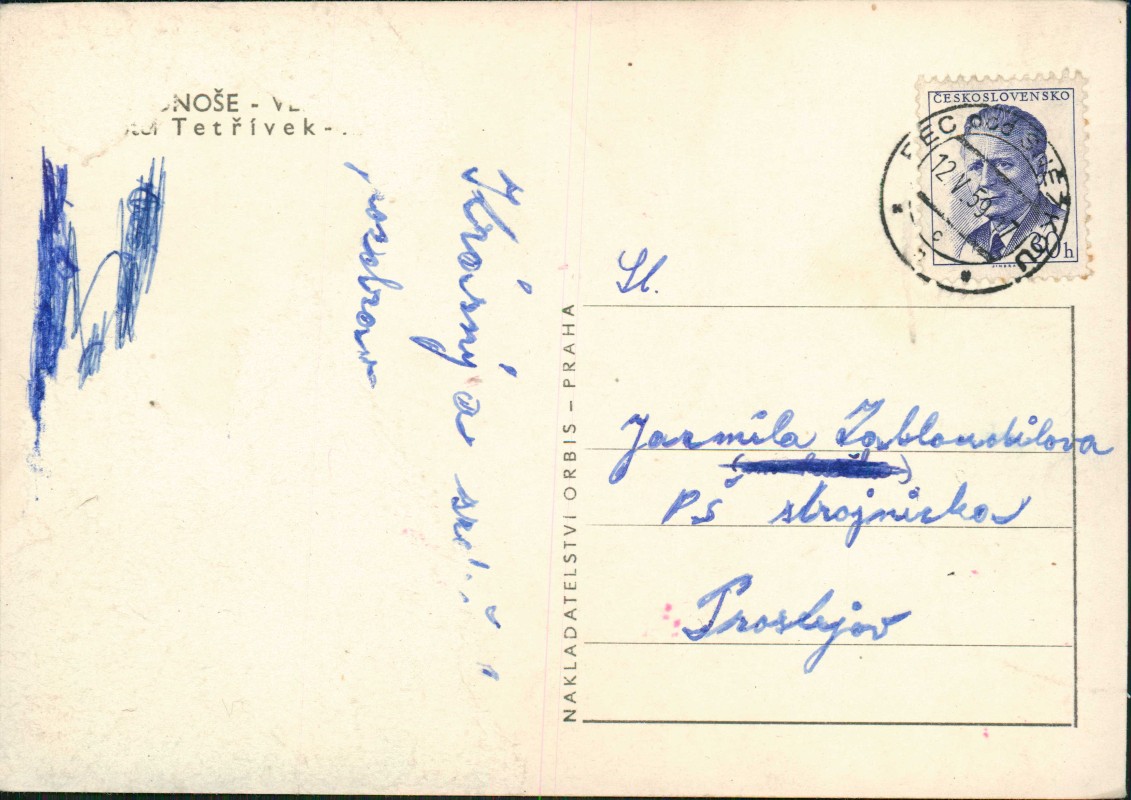 NOŠE - VE
Tetřívek-
Krásný a
pozdrav
NAKLADATELSTVÍ ORBIS – PRAHA
ČESKOSLOVENSKO
PEC POD SNĚŽKOU
12.V.59
h
Sl.
Jarmila Zabloudilova
PŠ strojnicka
Prostejov